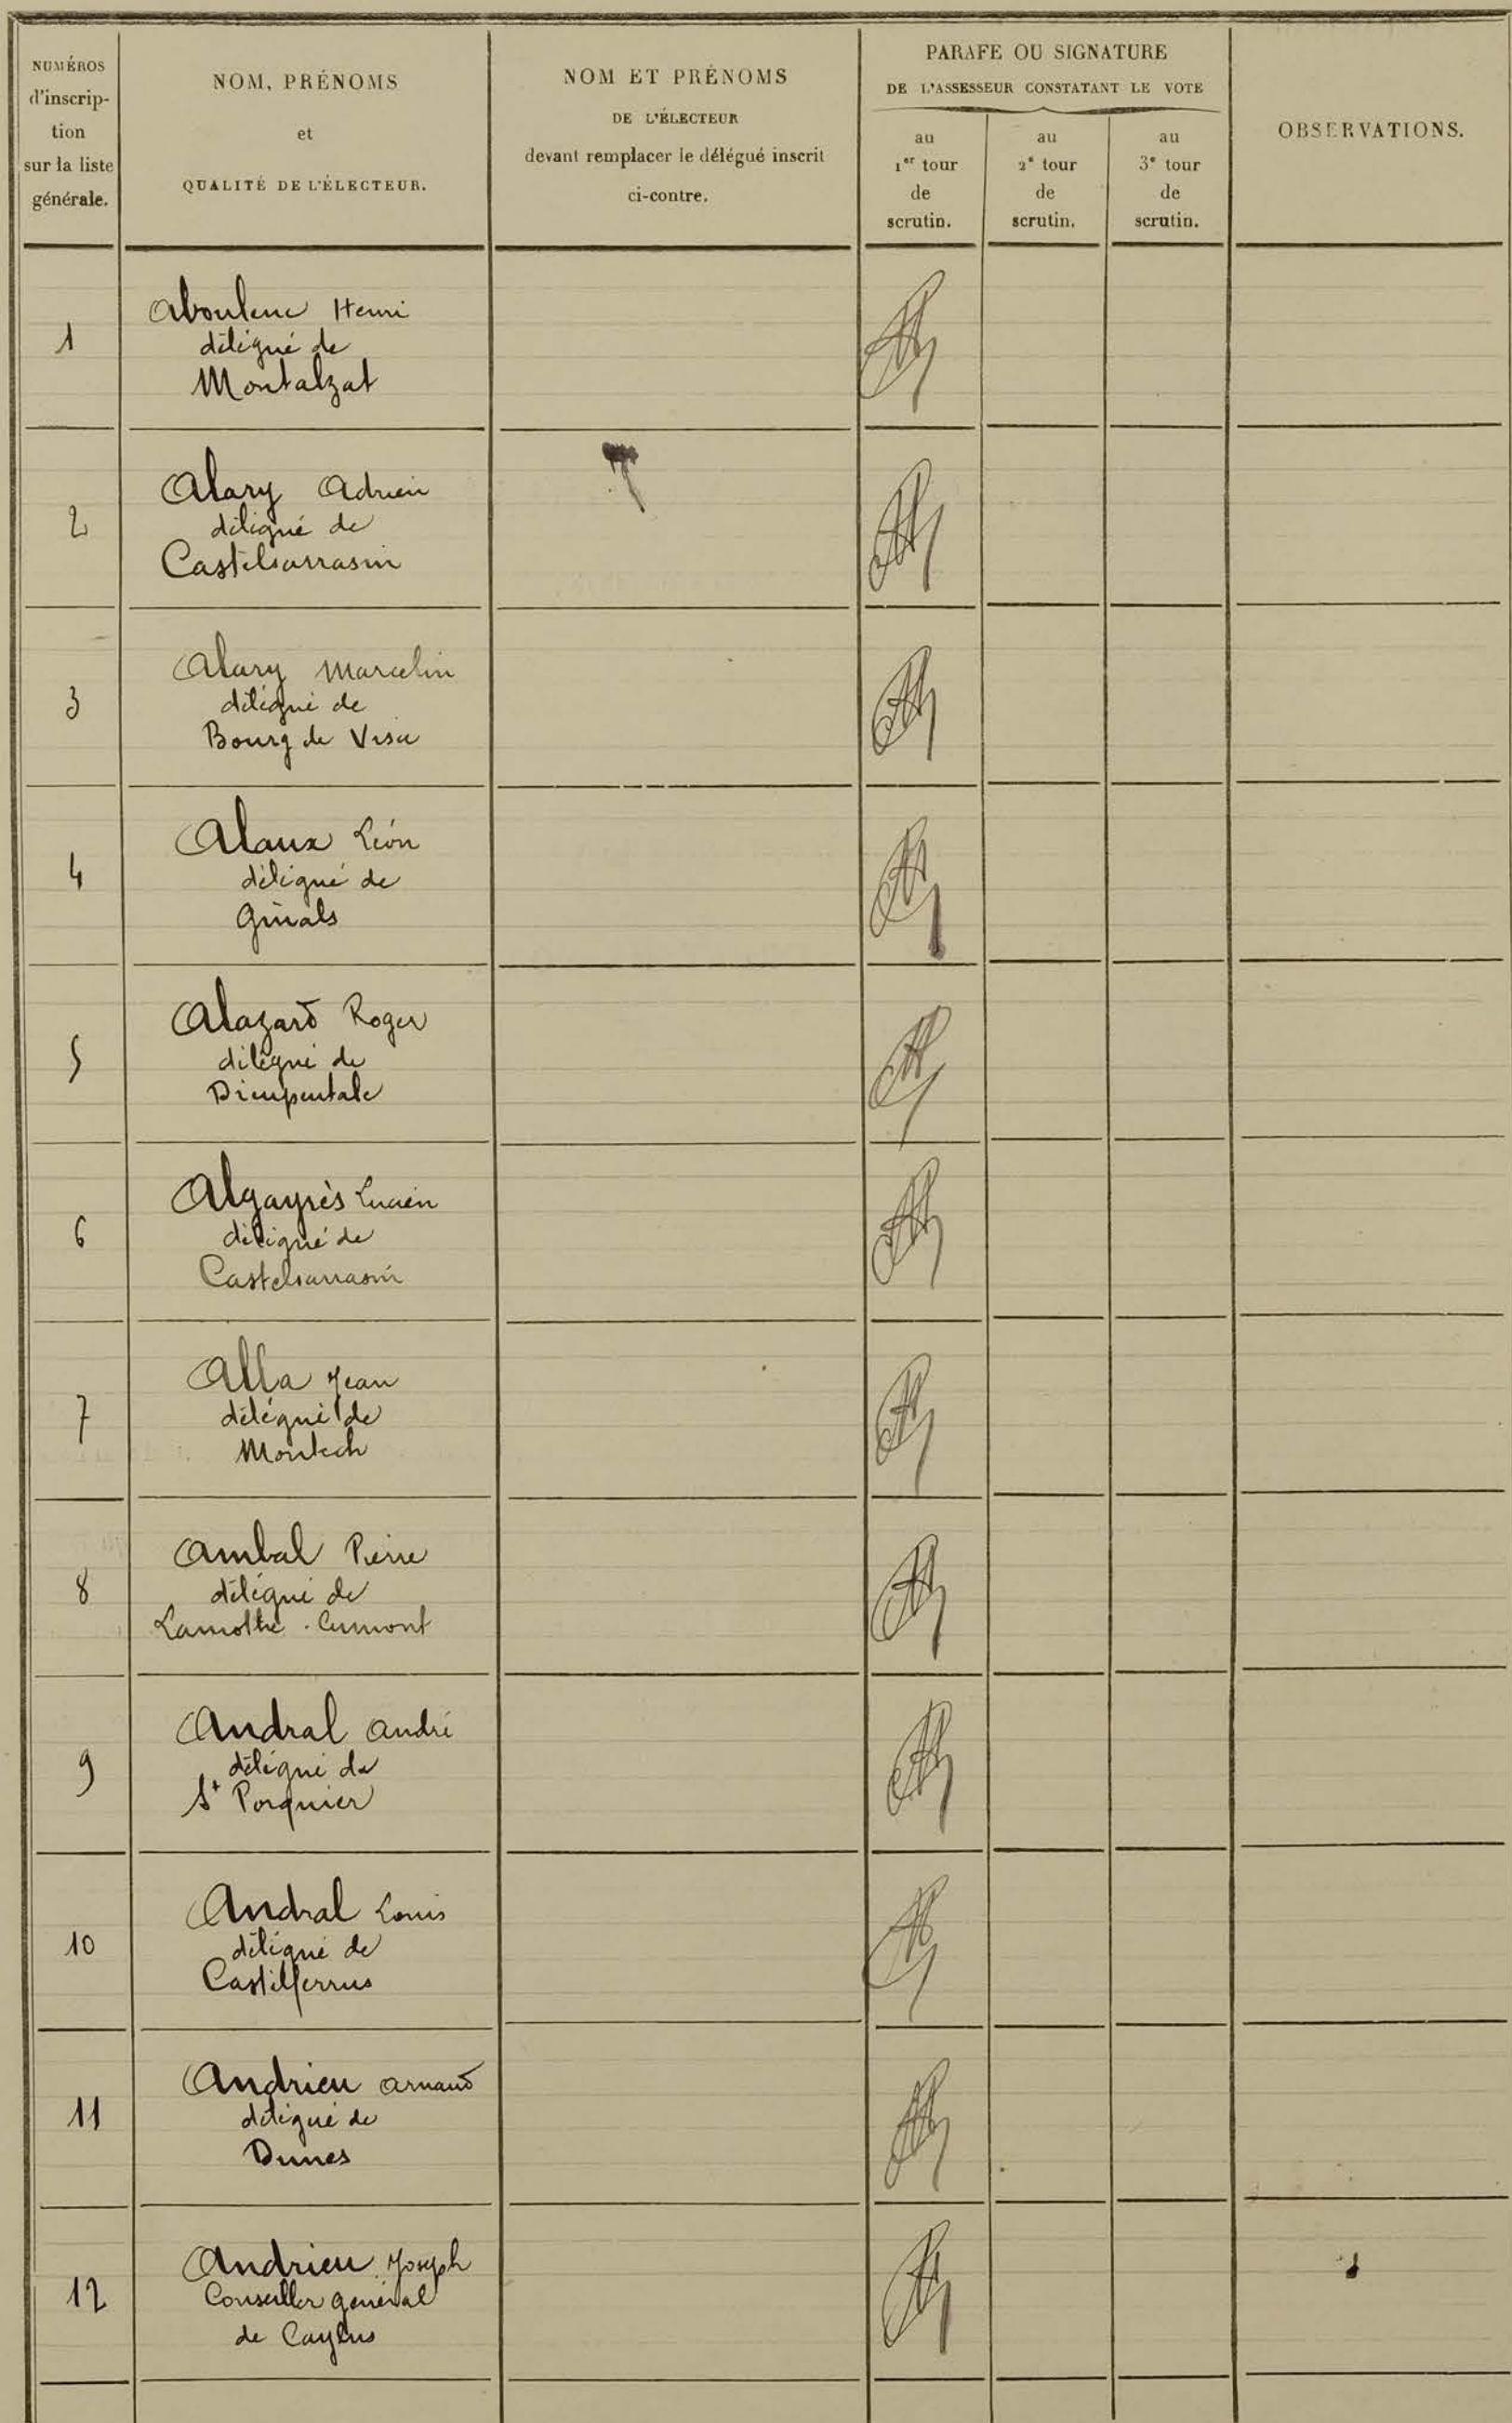 NUMÉROS
d'inscrip-
tion
sur la liste
générale.
NOM, PRÉNOMS
et
QUALITÉ DE L'ÉLECTEUR.
NOM ET PRÉNOMS
DE L'ÉLECTEUR
devant remplacer le délégué inscrit
ci-contre.
PARAFE OU SIGNATURE
DE L'ASSESSEUR CONSTATANT LE VOTE
au
1er tour
de
scrutin.
au
2e tour
de
scrutin.
au
3e tour
de
scrutin.
OBSERVATIONS.
1
Aboulenc Henri
délégué de
Montalzat
2
Alary Adrien
délégué de
Castelsarrasin
3
Alary Marcelin
délégué de
Bourg de Visa
4
Alaux Léon
délégué de
Ginals
5
Alazard Roger
délégué de
Dieupentale
6
Algayrès Lucien
délégué de
Castelsarrasin
7
Alla Jean
délégué de
Montech
8
Ambal Pierre
délégué de
Lamothe-Cumont
9
Andral André
délégué de
St Porquier
10
Andral Louis
délégué de
Castelferrus
11
Andrieu Arnaud
délégué de
Dunes
12
Andrieu Joseph
Conseiller général
de Caylus